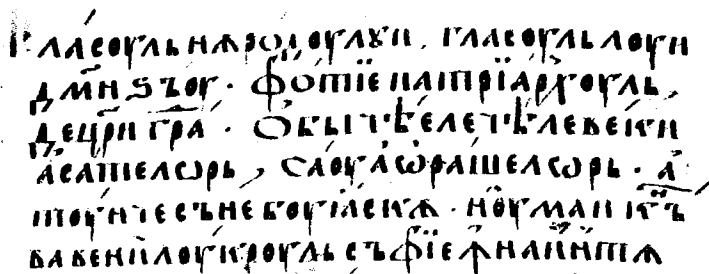 Гласоуль нѫродоулꙋи. гласоуль лоуи
дм҃нꙃъоу · фо́тїе патрїа́рхоуль,
де цр҃и гра́ · Обы́чѣеле ѣле ве́ки
а́сатєлѡрь, саоу а́ѡрашелѡрь · а́
тоу́нче съ не боуїа́скѫ · ноу́маи къ
ва вени́ лоукроуль съ фїе ꙟ наи́нтѫ